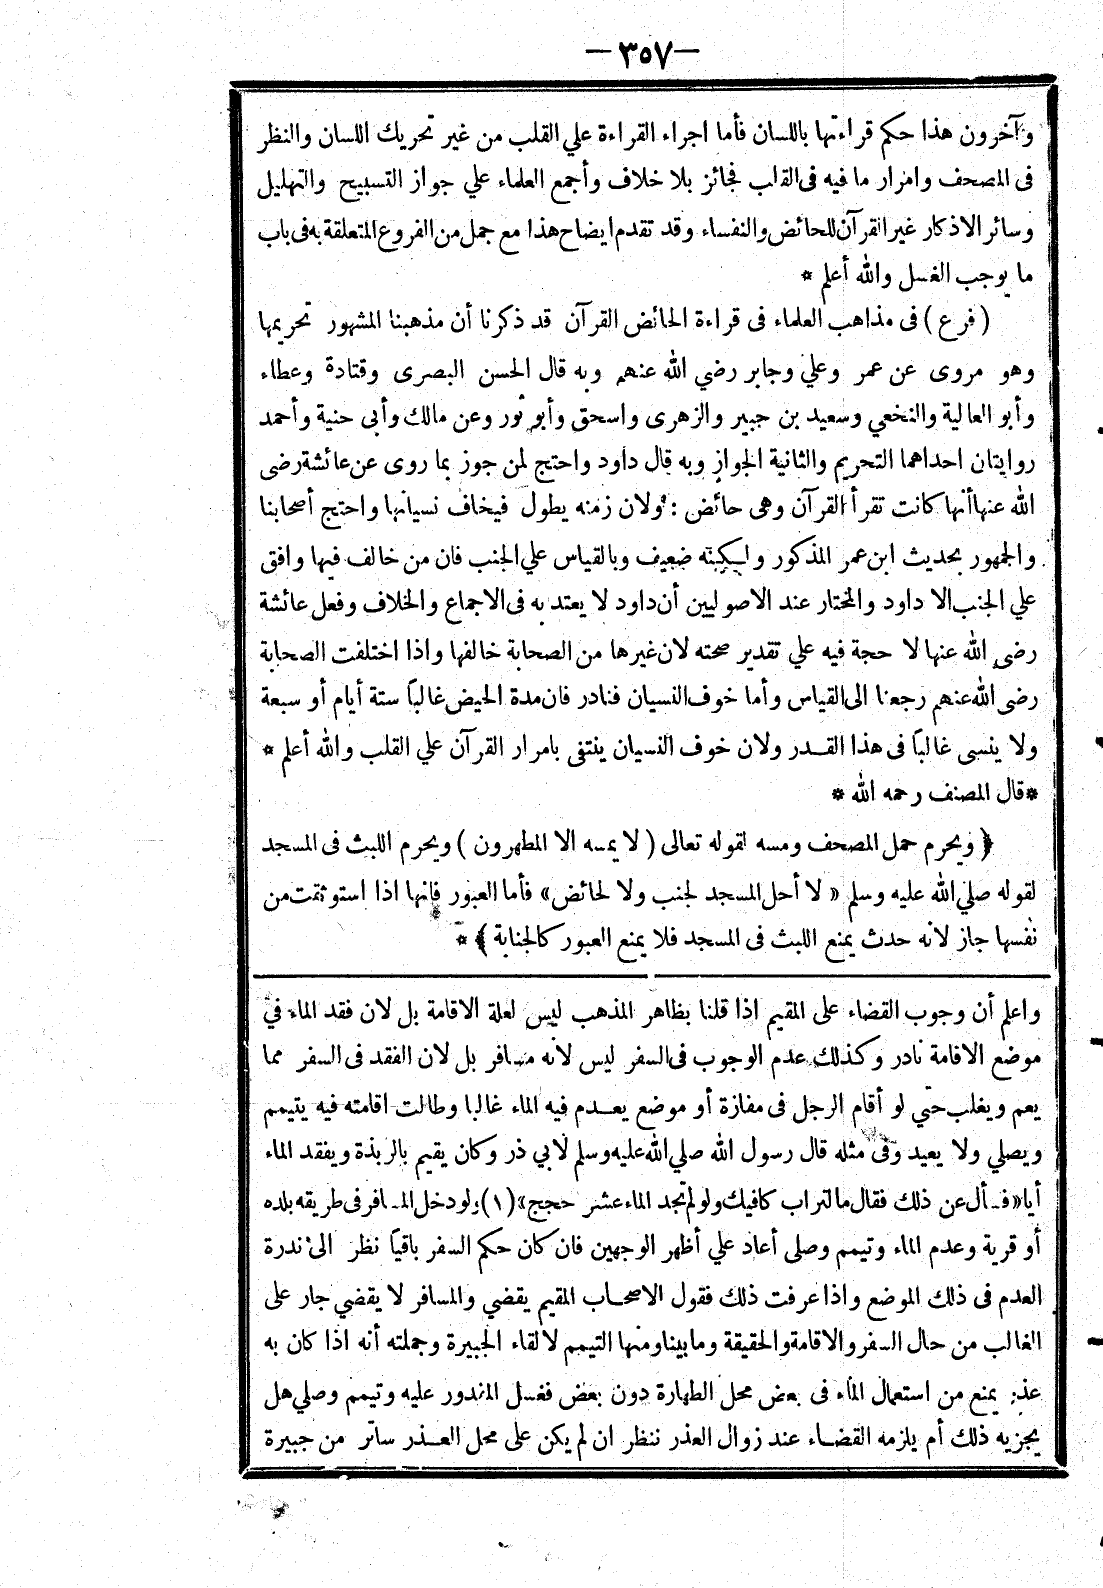 — ٣٥٧ —
وآخرون هذا حكم قراءتها باللسان فأما اجراء القراءة علي القلب من غير تحريك اللسان والنظر
فى المصحف وامرار ما فيه فى القلب فجائز بلا خلاف وأجمع العلماء علي جواز التسبيح والتهليل
وسائر الاذكار غير القرآن للحائض والنفساء وقد تقدم ايضاح هذا مع جمل من الفروع المتعلقة به فى باب
ما يوجب الغسل والله أعلم *
( فرع ) فى مذاهب العلماء فى قراءة الحائض القرآن قد ذكرنا أن مذهبنا المشهور تحريمها
وهو مروى عن عمر وعلي وجابر رضي الله عنهم وبه قال الحسن البصرى وقتادة وعطاء
وأبو العالية والنخعي وسعيد بن جبير والزهرى واسحق وأبو ثور وعن مالك وأبى حنيفة وأحمد
روايتان احداهما التحريم والثانية الجواز وبه قال داود واحتج لمن جوز بما روى عن عائشة رضى
الله عنها أنها كانت تقرأ القرآن وهى حائض : ولان زمنه يطول فيخاف نسيانها واحتج أصحابنا
والجمهور بحديث ابن عمر المذكور ولكنه ضعيف وبالقياس علي الجنب فان من خالف فيها وافق
علي الجنب الا داود والمختار عند الاصوليين أن داود لا يعتد به فى الاجماع والخلاف وفعل عائشة
رضى الله عنها لا حجة فيه علي تقدير صحته لان غيرها من الصحابة خالفها واذا اختلفت الصحابة
رضى الله عنهم رجعنا الى القياس وأما خوف النسيان فنادر فان مدة الحيض غالباً ستة أيام أو سبعة
ولا ينسى غالباً فى هذا القدر ولان خوف النسيان ينتفى بامرار القرآن علي القلب والله أعلم *
* قال المصنف رحمه الله *
﴿ ويحرم حمل المصحف ومسه لقوله تعالى ( لا يمسه الا المطهرون ) ويحرم اللبث فى المسجد
لقوله صلي الله عليه وسلم « لا أحل المسجد لجنب ولا لحائض » فأما العبور فانها اذا استوثقت من
نفسها جاز لانه حدث يمنع اللبث فى المسجد فلا يمنع العبور كالجنابة ﴾ *
واعلم أن وجوب القضاء على المقيم اذا قلنا بظاهر المذهب ليس لعلة الاقامة بل لان فقد الماء في
موضع الاقامة نادر وكذلك عدم الوجوب فى السفر ليس لانه مسافر بل لان الفقد فى السفر مما
يعم ويغلب حتي لو أقام الرجل فى مفازة أو موضع يعدم فيه الماء غالبا وطالت اقامته فيه يتيمم
ويصلي ولا يعيد وفى مثله قال رسول الله صلي الله عليه وسلم لابي ذر وكان يقيم بالربذة ويفقد الماء
أياما « فسأل عن ذلك فقال التراب كافيك ولو لم تجد الماء عشر حجج » (١) ولو دخل المسافر فى طريقه بلده
أو قرية وعدم الماء وتيمم وصلى أعاد علي أظهر الوجهين فان كان حكم السفر باقياً نظر الى ندرة
العدم فى ذلك الموضع واذا عرفت ذلك فقول الاصحاب المقيم يقضي والمسافر لا يقضي جار على
الغالب من حال السفر والاقامة والحقيقة وما بينا ومنها التيمم لالقاء الجبيرة وجملته أنه اذا كان به
عذر يمنع من استعمال الماء فى بعض محل الطهارة دون بعض فغسل المقدور عليه وتيمم وصلي هل
يجزيه ذلك أم يلزمه القضاء عند زوال العذر ننظر ان لم يكن على محل العذر ساتر من جبيرة